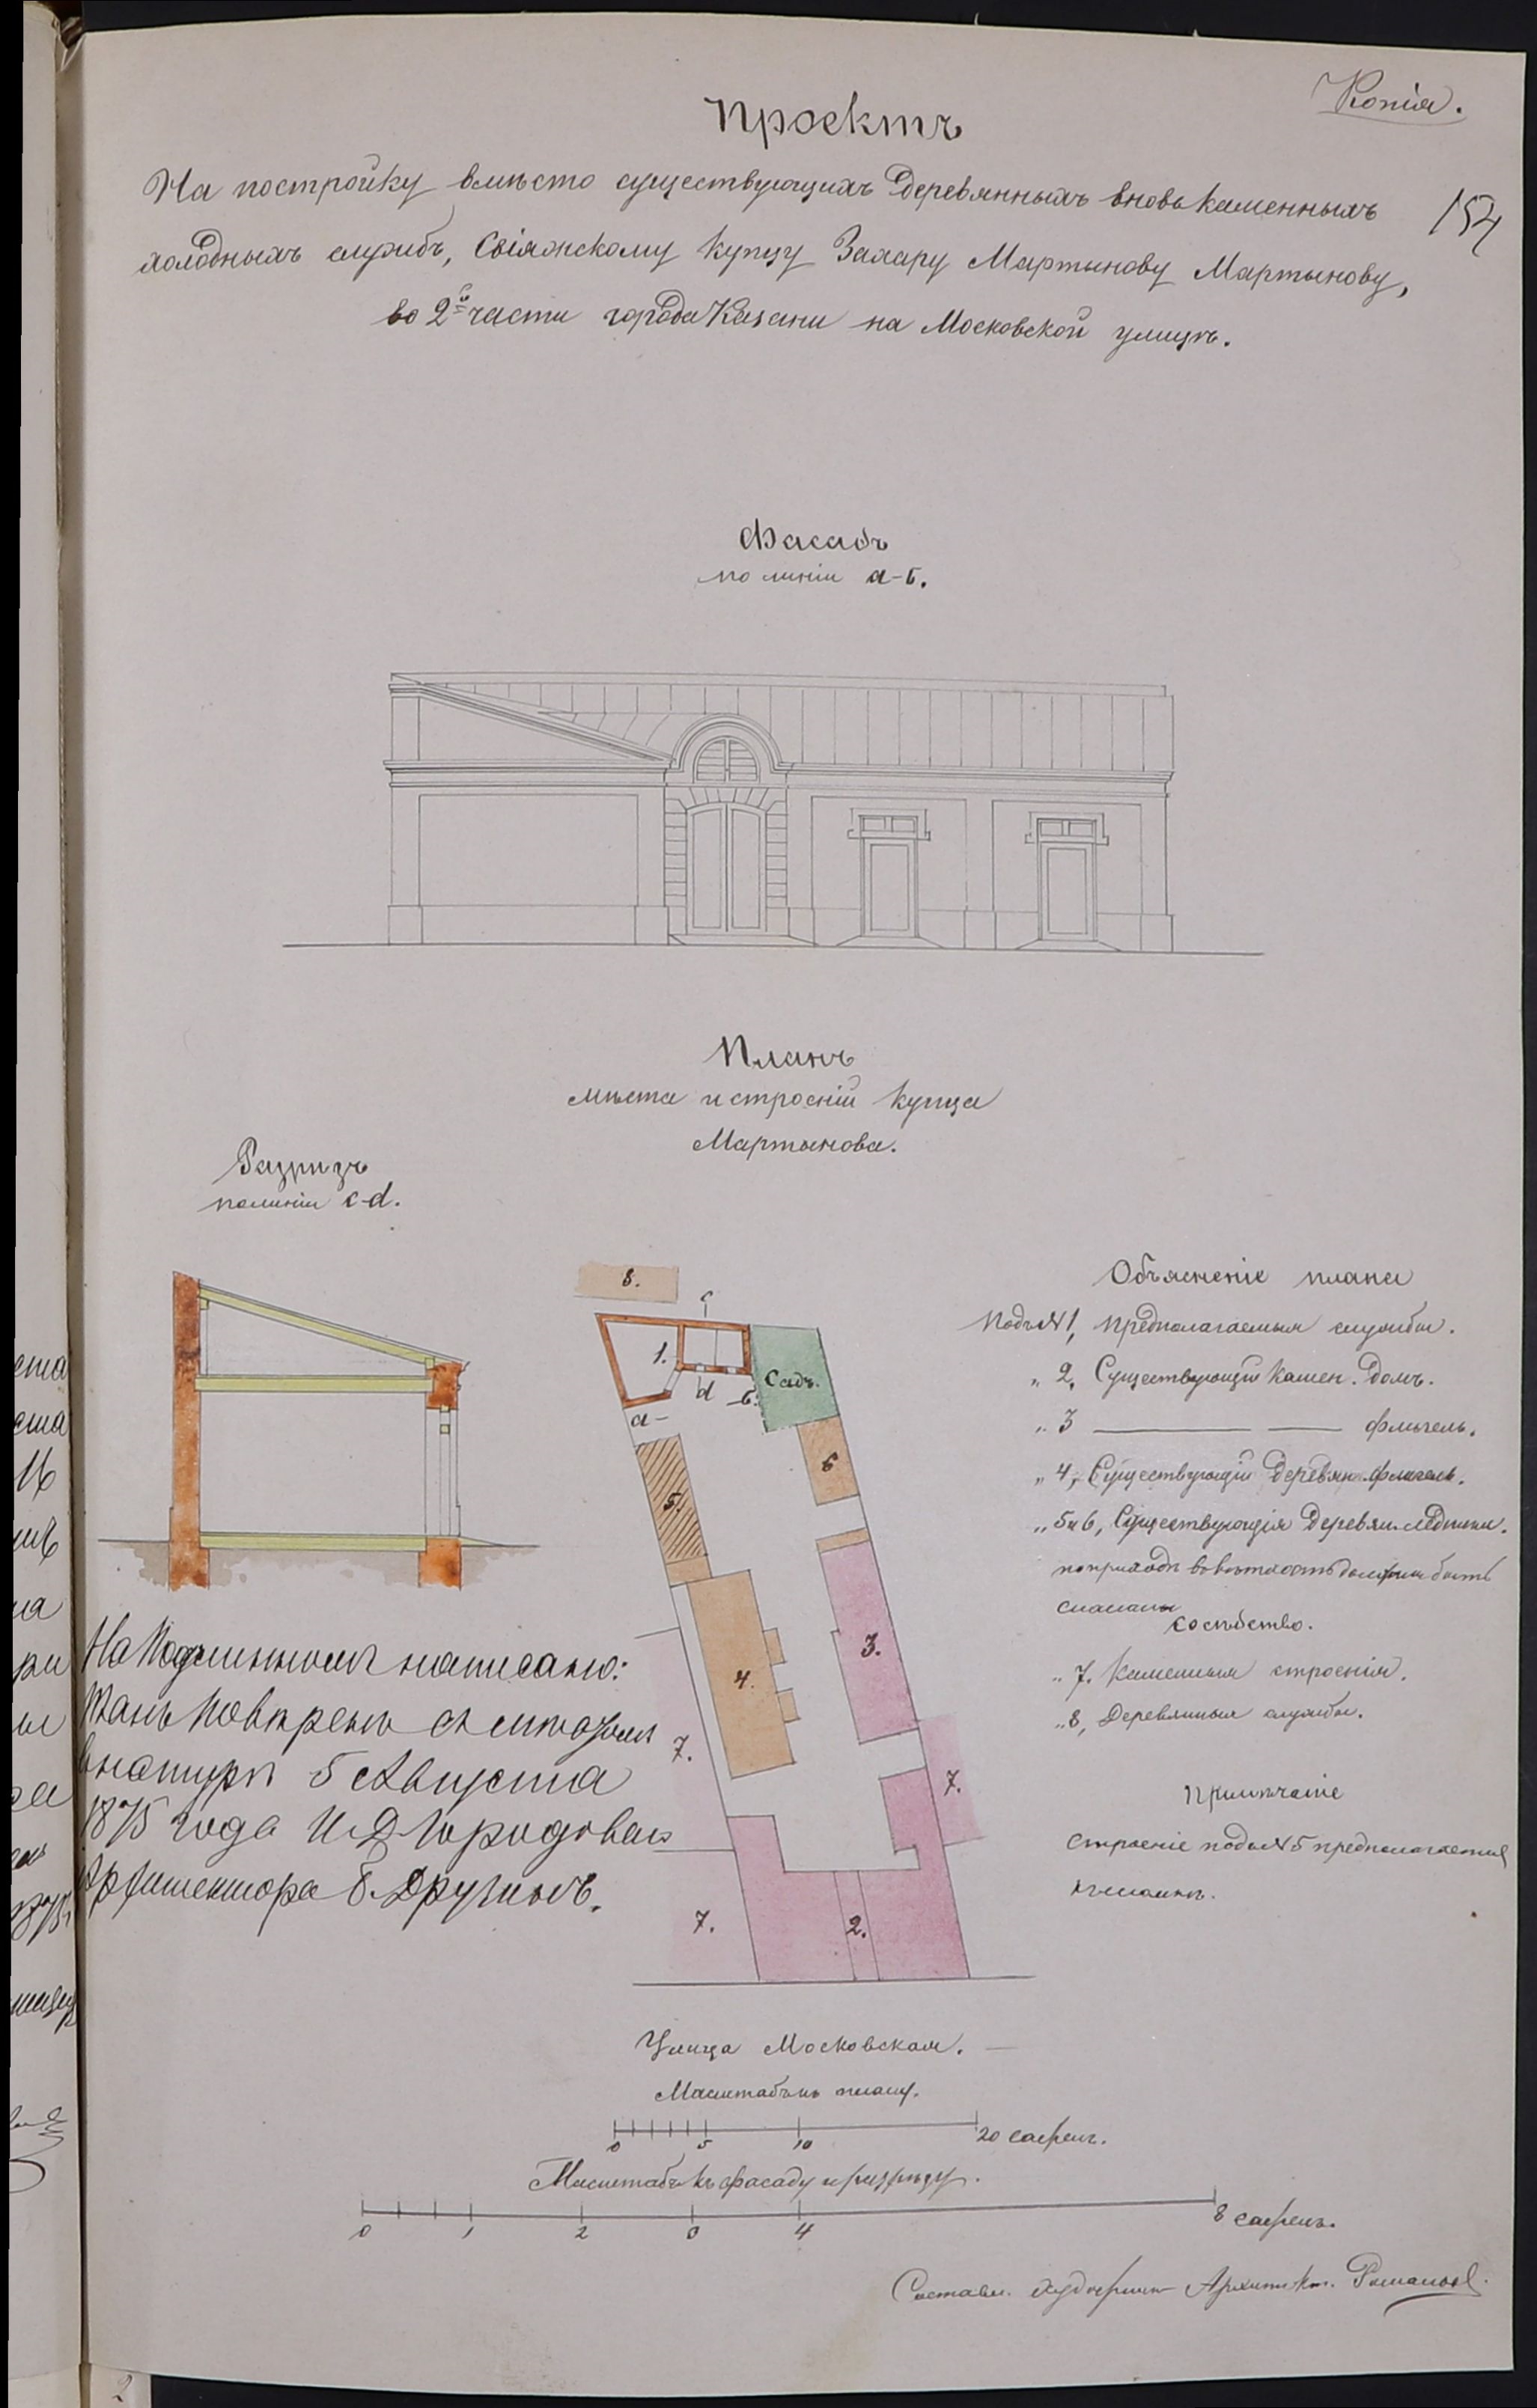 Копія.
Проектъ
На постройку вмѣсто существующихъ деревянныхъ вновь каменныхъ
154
холодныхъ службъ, Свіяжскому купцу Захару Мартынову Мартынову,
во 2й части города Казани на Московской улицѣ.
Фасадъ
по линіи а-б.
Планъ
мѣста и строеній купца
Мартынова.
Разрѣзъ
по линіи c-d.
8.
c
1.
d
а-
-б.
Садъ.
5.
6
3.
4.
7.
7.
7.
2.
Объясненіе плана
Подъ № 1, предполагаемыя службы.
„ 2, Существующій камен. домъ.
„ 3 ——— —— флигель.
„ 4, Существующій деревян. флигель.
„ 5 и 6, Существующія деревян. ледники.
по приходѣ въ ветхость должны быть
сломаны
Сосѣдство.
„ 7. Каменныя строенія.
„ 8, Деревянныя службы.
Примѣчаніе
Строеніе подъ № 5 предполагается
къ сломкѣ.
На Подлинномъ написано:
Планъ повѣренъ съ мѣстомъ
въ натурѣ 5 Августа
1875 года И Д Городоваго
Архитектора Б. Друзинъ.
Улица Московская.
Масштабъ къ плану.
0 5 10 20 сажень.
Масштабъ къ фасаду и разрѣзу.
0 1 2 3 4 8 сажень.
Составл. Архитект. Романовъ.